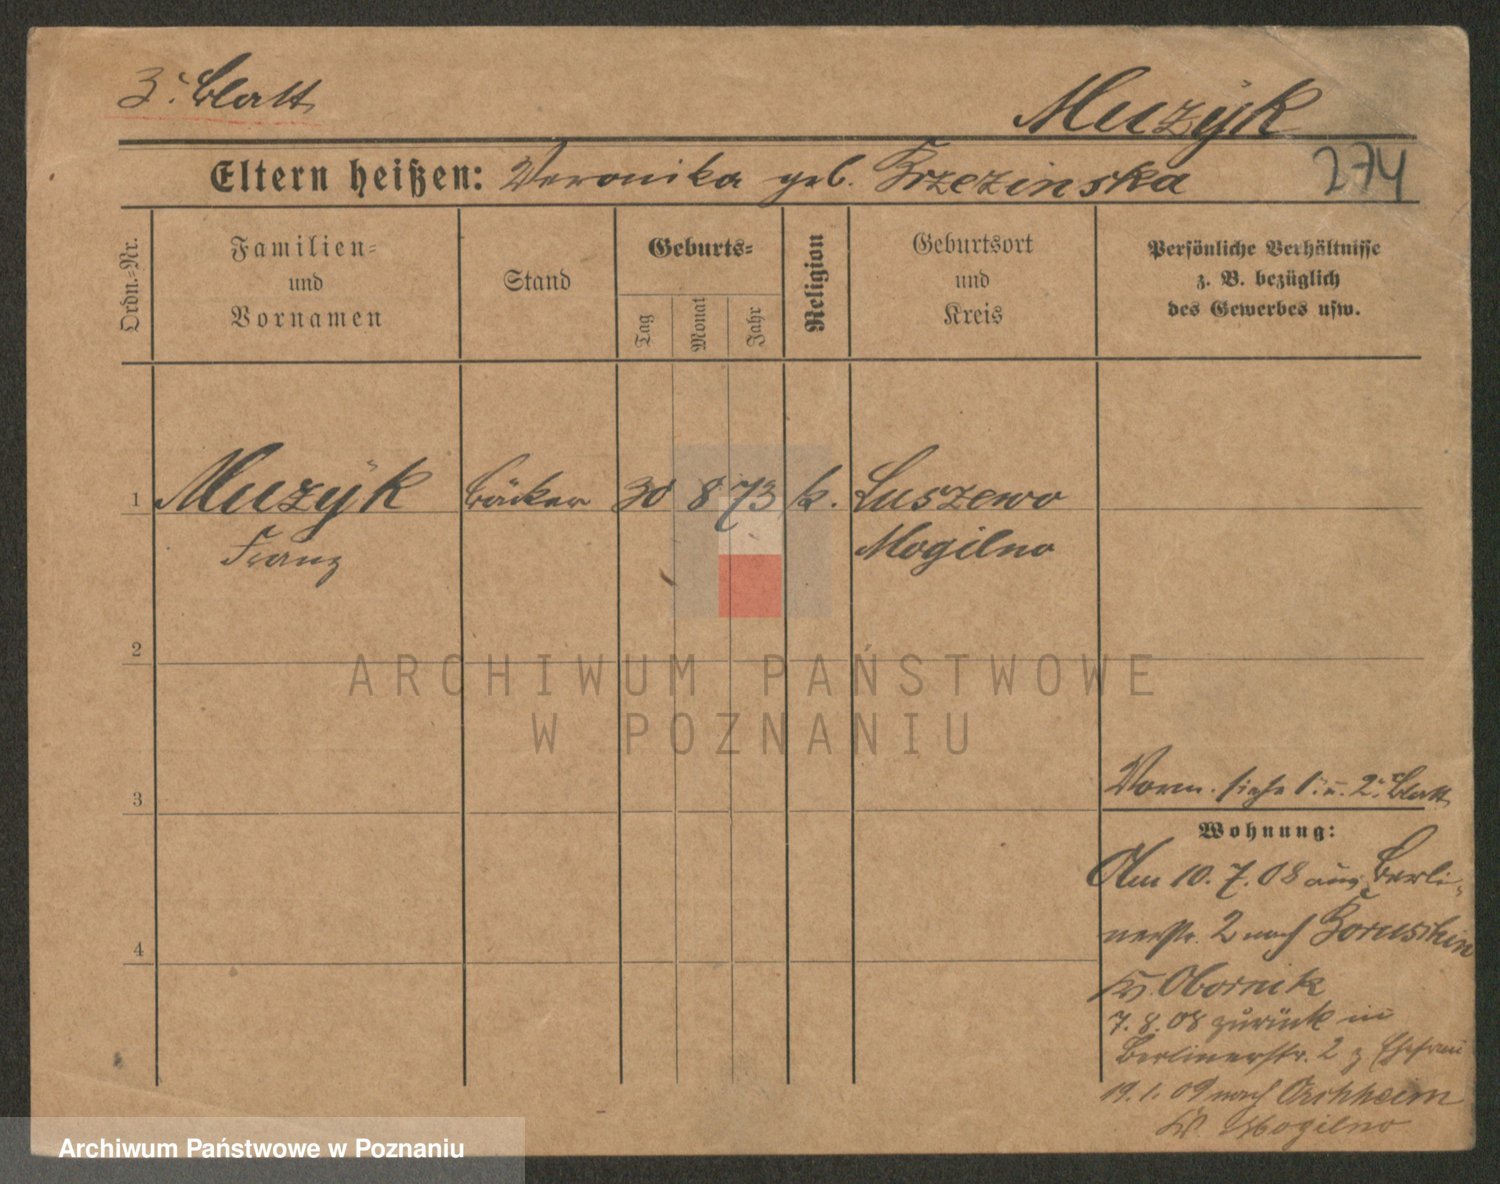 3. Blatt
Muzyk
Eltern heißen: Veronika geb. Brzezinska
274
Ordn.-Nr.
Familien-
und
Vornamen
Stand
Geburts-
Tag
Monat
Jahr
Religion
Geburtsort
und
Kreis
Persönliche Verhältnisse
z. B. bezüglich
des Gewerbes usw.
1 Muzyk Bäcker 30 8 73 k. Luszewo
Franz Mogilno
2
ARCHIWUM PAŃSTWOWE
W POZNANIU
3
Vorm. siehe 1. u. 2. Blatt
Wohnung:
Am 10. 7. 08 aus Berli-
nerstr. 2 nach
Kr. Obornik
4
7. 8. 08 zurück in
Berlinerstr. 2 z Ehefrau
19. 1. 09 nach
Kr. Mogilno
Archiwum Państwowe w Poznaniu